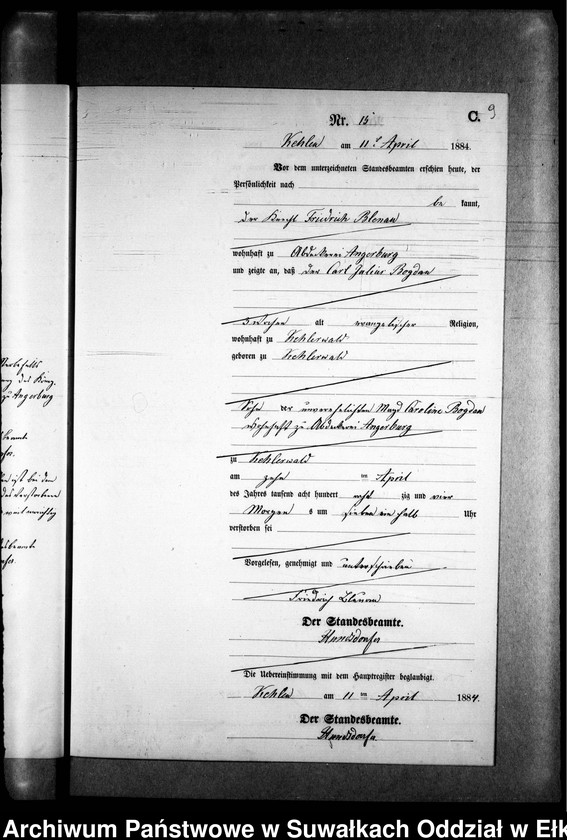 9
C.
Nr. 15
Kehlen am 11ten April 1884.
Vor dem unterzeichneten Standesbeamten erschien heute, der
Persönlichkeit nach
be kannt,
der Knecht Friedrich
wohnhaft zu Abdeckerei Angerburg
und zeigte an, daß der Carl Julius Bogdan
3 Wochen alt evangelischer Religion,
wohnhaft zu Kehlerwald
geboren zu Kehlerwald
Sohn der unverehelichten Magd Caroline Bogdan
wohnhaft zu Abdeckerei Angerburg
zu Kehlerwald
am zehn ten April
des Jahres tausend acht hundert acht zig und vier
Morgen s um sieben ein halb Uhr
verstorben sei
Vorgelesen, genehmigt und unterschrieben
Friedrich
Der Standesbeamte.
Die Uebereinstimmung mit dem Hauptregister beglaubigt.
Kehlen am 11 ten April 1884.
Der Standesbeamte.
zu Angerburg
Archiwum Państwowe w Suwałkach Oddział w Ełk